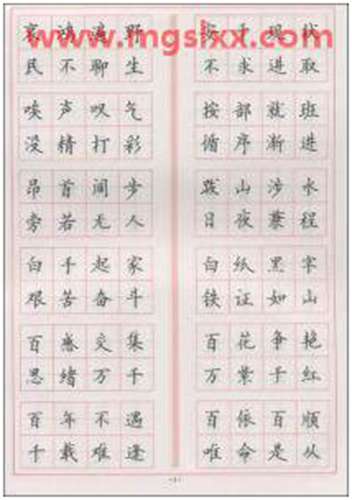 www.mgsixx.com
哀鸿遍野
民不聊生
唉声叹气
没精打彩
昂首阔步
旁若无人
白手起家
艰苦奋斗
百感交集
思绪万千
百年不遇
千载难逢
安于现状
不求进取
按部就班
循序渐进
跋山涉水
日夜兼程
白纸黑字
铁证如山
百花争艳
万紫千红
百依百顺
唯命是从